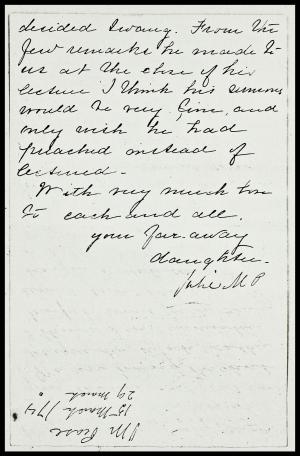 decided twang. From the
few remarks he made to
us at the close of his
lecture I think his sermons
would be very fine, and
only wish he had
preached instead of
lectured.
With very much love
to each and all.
your far-away
daughter.
Julie M P
J M Pease
15 March / 74
29 March